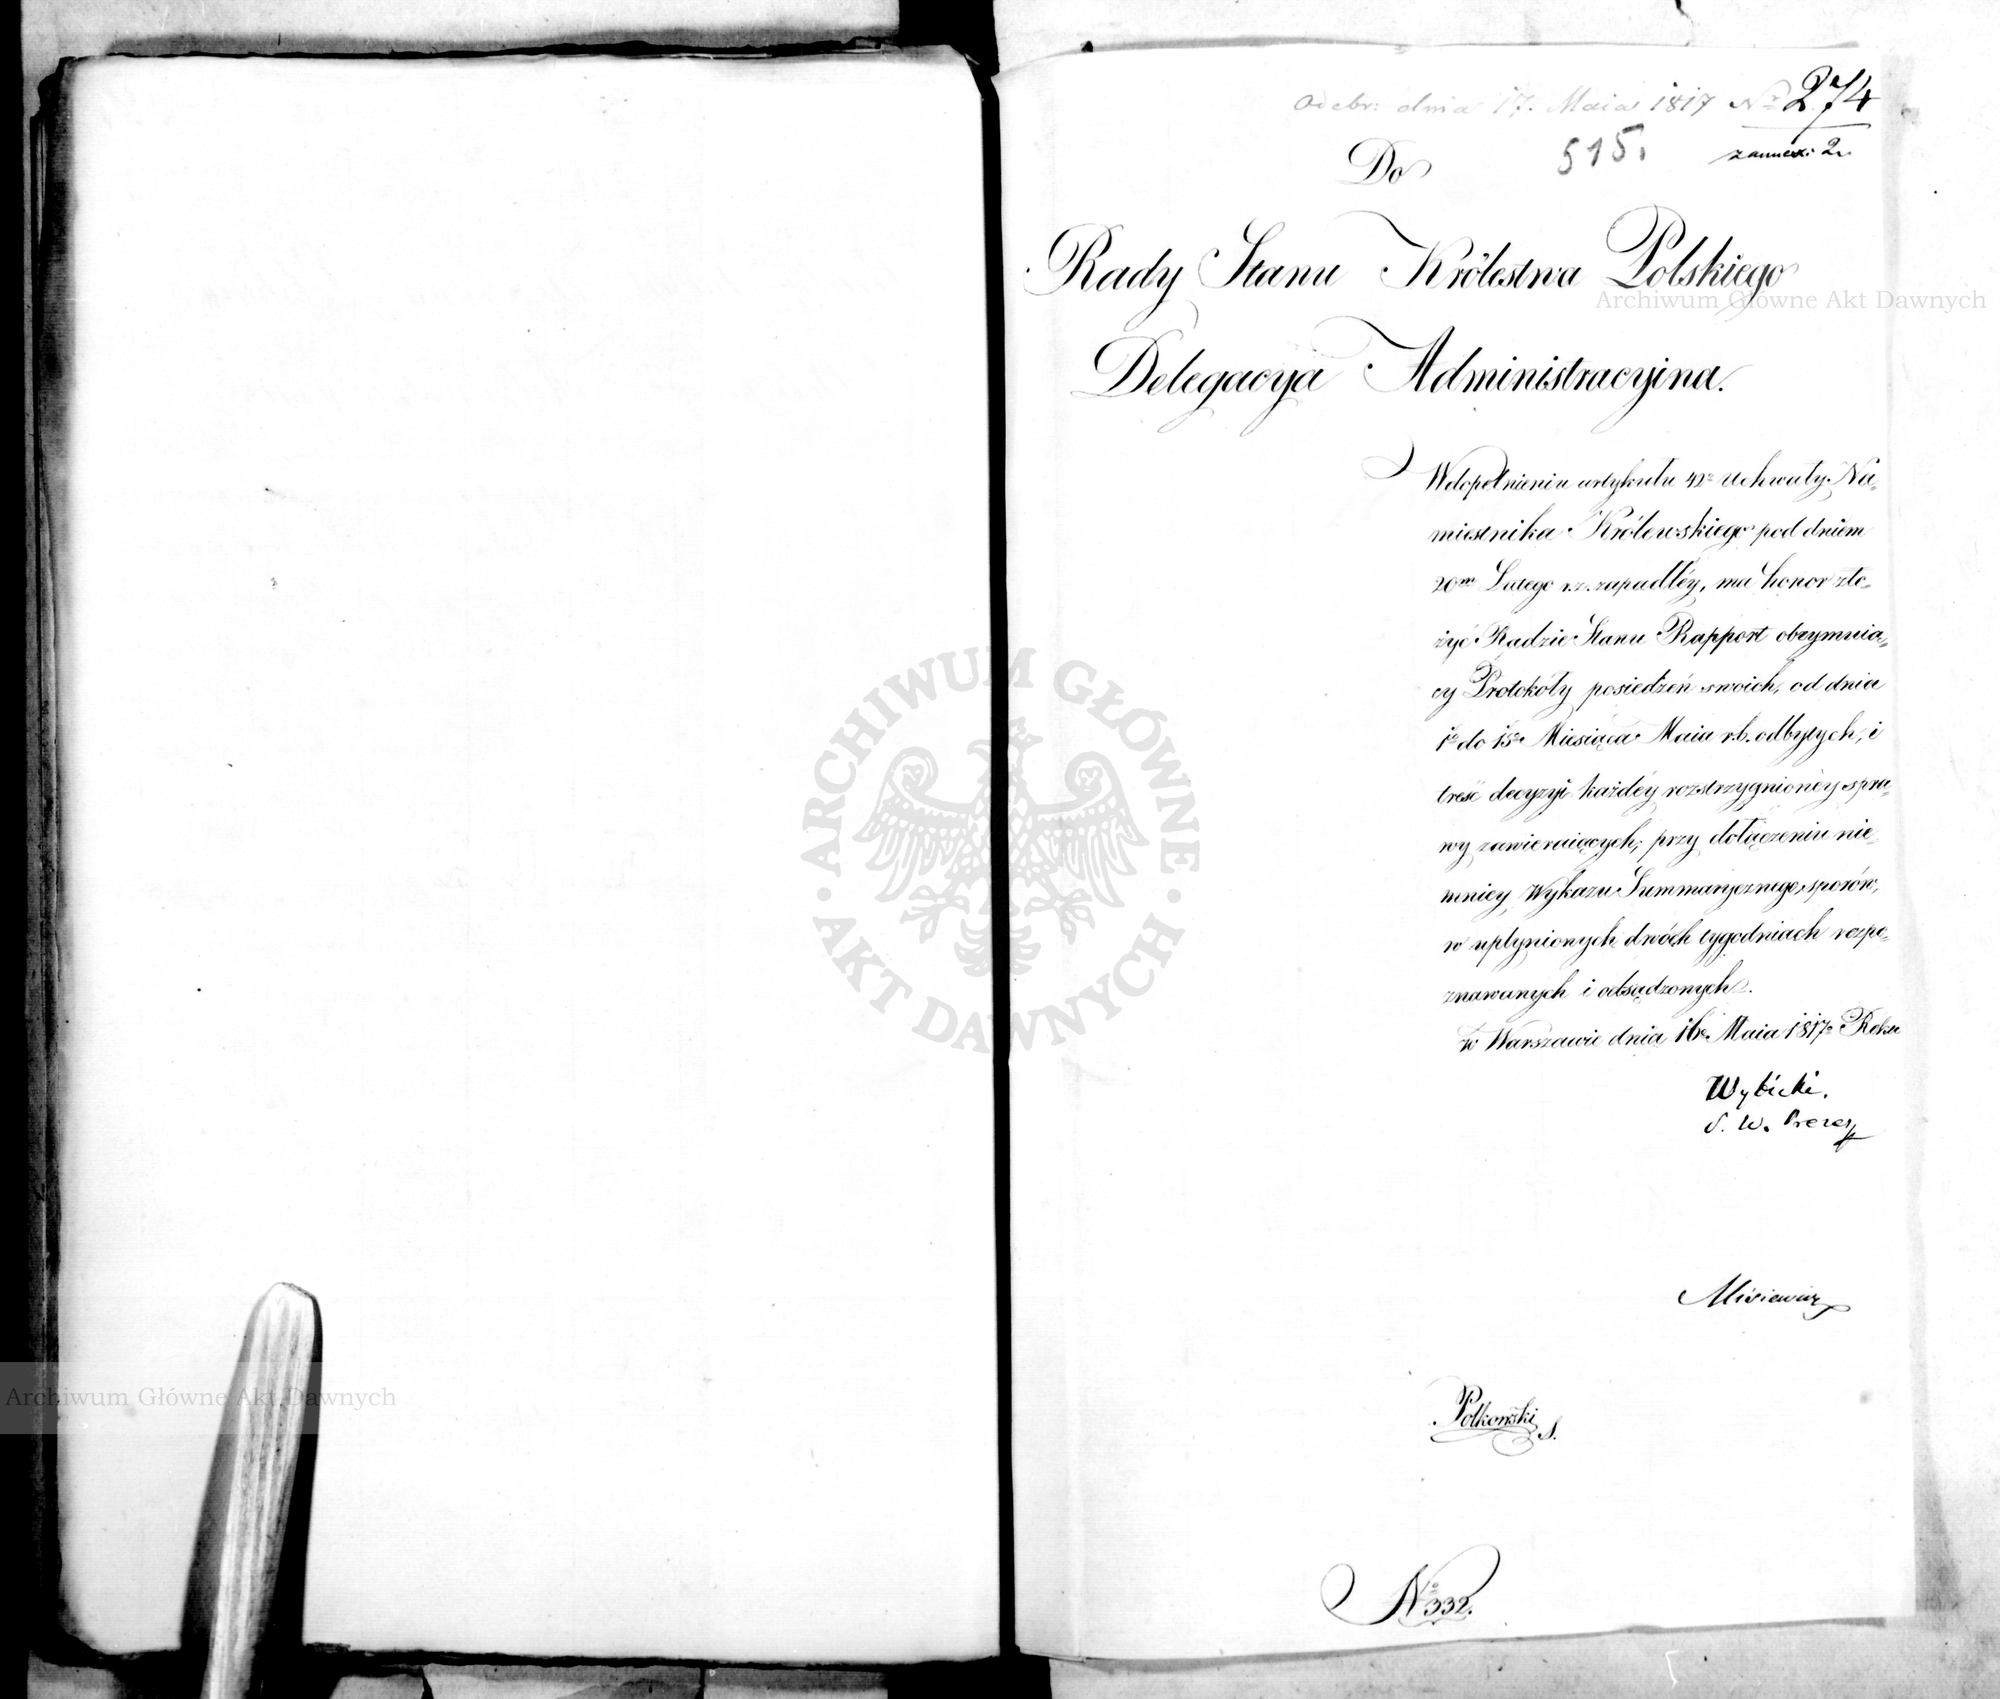 Odebr: dnia 17. Maia 1817 Nr 274
z annex: 2.
515.
Do
Rady Stanu Królestwa Polskiego
Delegacya Administracyina.
W dopełnieniu artykułu 42o Uchwały Na-
miestnika Królewskiego pod dniem
20m Lutego r.z. zapadłéy, ma honor zło-
żyć Radzie Stanu Rapport obeymuia-
cy Protokóły posiedzeń swoich, od dnia
1o do 15o Miesiąca Maia r.b. odbytych, i
treść decyzyi każdéy rozstrzygnionéy spra-
wy zawieraiących; przy dołączeniu nie-
mniey Wykazu Summarycznego, sporów,
w upłynionych dwóch tygodniach rozpo-
znawanych i odsądzonych.
w Warszawie dnia 16o Maia 1817o Roku
Wybicki.
S. W. Prezes
Misiewicz
Polkowski S.
No 332.
Archiwum Główne Akt Dawnych
ARCHIWUM GŁÓWNE AKT DAWNYCH
Archiwum Główne Akt Dawnych